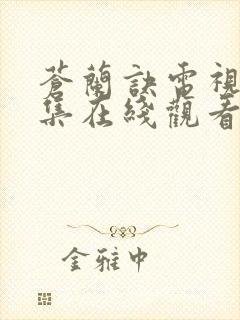 蒼蘭訣電視
集在綫觀看
金雅中